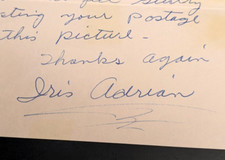 sting your postage
this picture -
Thanks again
Iris Adrian